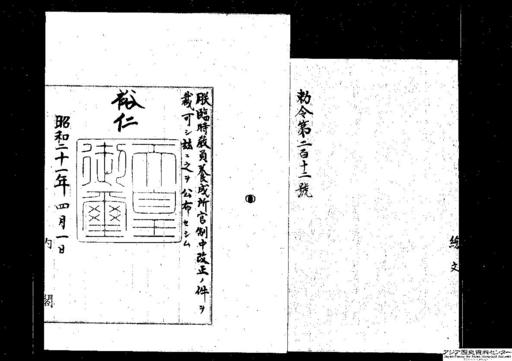 勅令第二百十二號
朕臨時教員養成所官制中改正ノ件ヲ
裁可シ玆ニ之ヲ公布セシム
裕仁
天皇御璽
昭和二十一年四月一日
内閣
アジア歴史資料センター